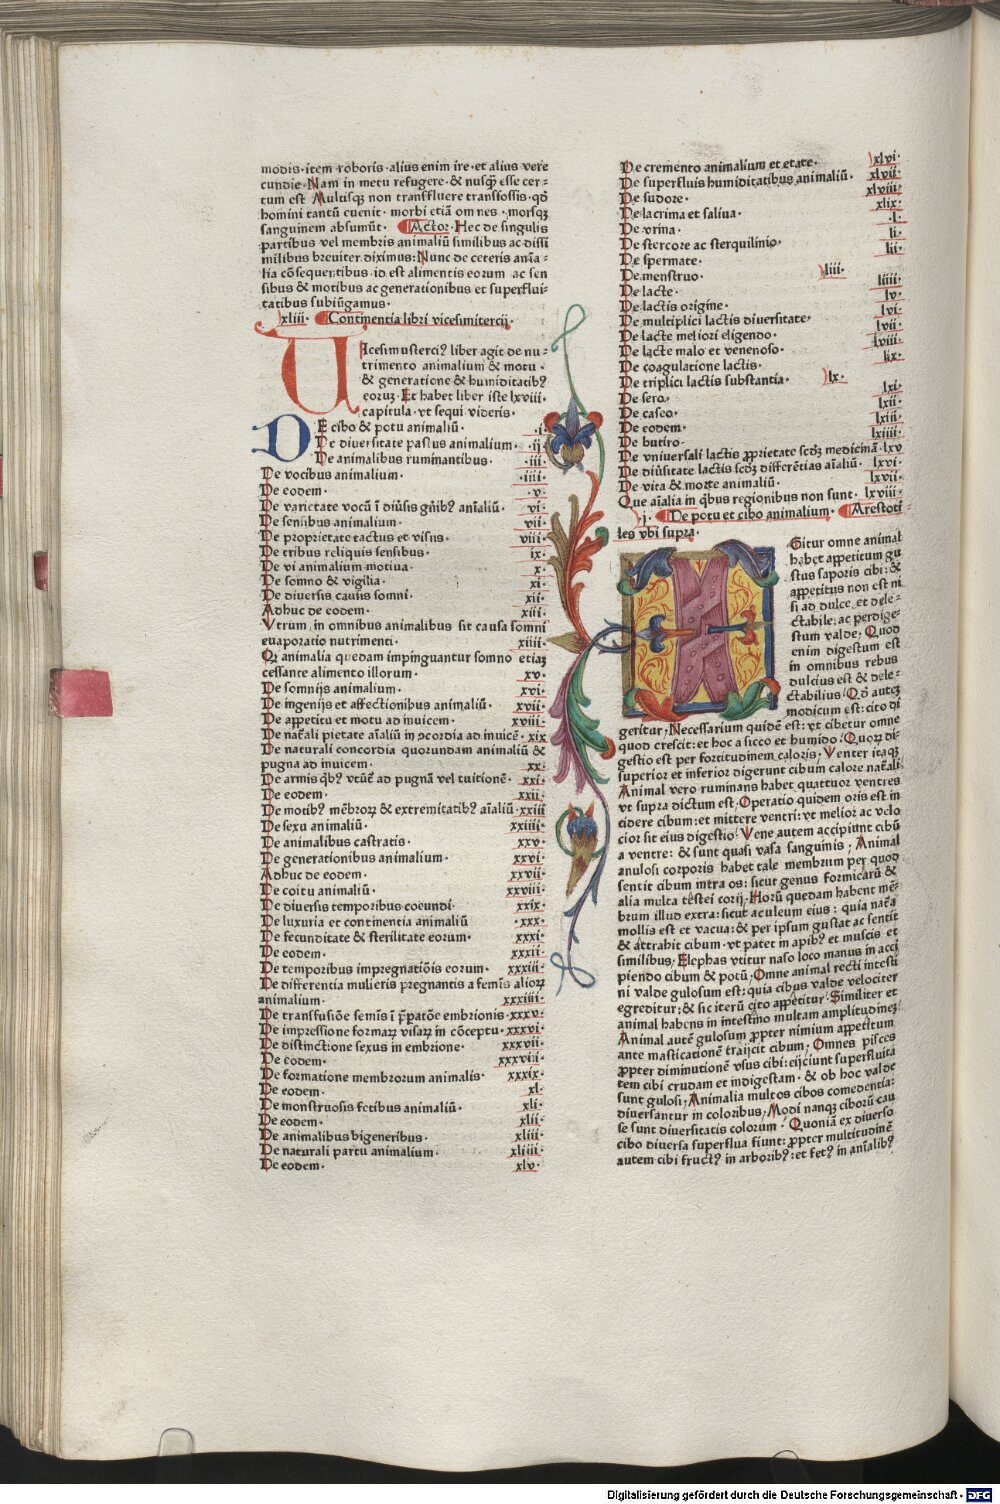 modis·item roboris·alius enim ire·et alius vere
cundie·Nam in metu refugere·& nusq̃ esse cer-
tum est Multisq; non transfluere transfossis·qð
homini tantũ euenit·morbi etiã omnes·morsq;
sanguinem absumũt·Actor·Hec de singulis
partibus vel membris animaliũ similibus ac dissi
milibus breuiter diximus:Nunc de ceteris anĩa-
lia cõsequentibus·id est alimentis eorum ac sen
sibus & motibus ac generationibus et superflui-
tatibus subiũgamus·
xliii·Continentia libri vicesimitercij·
Uicesimusterciꝰ liber agit de nu-
trimento animalium & motu·
& generatione & humiditatibꝫ
eorum·Et habet liber iste lxviii·
capitula·vt sequi videris·
DE cibo & potu animaliũ· ·i·
De diuersitate pastus animalium· ·ij·
De animalibus ruminantibus· ·iii·
De vocibus animalium· ·iiii·
De eodem· ·v·
De varietate vocũ ĩ diũsis gñibꝫ anĩaliũ· vi·
De sensibus animalium· vii·
De proprietate tactus et visus· viii·
De tribus reliquis sensibus· ix·
De vi animalium motiua· x·
De somno & vigilia· xi·
De diuersis causis somni· xii·
Adhuc de eodem· xiii·
Vtrum in omnibus animalibus sit causa somni
euaporatio nutrimenti· xiiii·
Q animalia quedam impinguantur somno etiaꝫ
cessante alimento illorum· xv·
De somnijs animalium· xvi·
De ingenijs et affectionibus animaliũ· xvii·
De appetitu et motu ad inuicem· xviii·
De nat̃ali pietate aĩaliũ in ꝯcordia ad inuicẽ· xix
De naturali concordia quorundam animaliũ &
pugna ad inuicem· xx·
De armis q̃bꝫ vtũt̃ ad pugnã vel tuitionẽ· xxi·
De eodem· xxii·
De motibꝫ mẽbroꝝ & extremitatibꝫ aĩaliũ·xxiii
De sexu animaliũ· xxiiii·
De animalibus castratis· xxv·
De generationibus animalium· xxvi·
Adhuc de eodem· xxvii·
De coitu animaliũ· xxviii·
De diuersis temporibus coeundi· xxix·
De luxuria et continentia animaliũ ·xxx·
De fecunditate & sterilitate eorum· xxxi·
De eodem· xxxii·
De temporibus impregnatiõis eorum· xxxiii·
De differentia mulieris pregnantis a femĩs alioꝝ
animalium· xxxiiii·
De transfusiõe semĩs ĩ p̃patõe embrionis·xxxv·
De impressione formaꝝ visaꝝ in cõceptu·xxxvi·
De distinctione sexus in embrione· xxxvii·
De eodem· xxxviii·
De formatione membrorum animalis· xxxix·
De eodem· xl·
De monstruosis fetibus animaliũ· xli·
De eodem· xlii·
De animalibus bigeneribus· xliii·
De naturali partu animalium· xliiii·
De eodem· xlv·
De cremento animalium et etate· xlvi·
De superfluis humiditatibus animaliũ· xlvii·
De sudore· xlviii·
De lacrima et saliua· xlix·
De vrina· ·l·
De stercore ac sterquilinio· li·
De spermate· lii·
De menstruo· liii·
De lacte· liiii·
De lactis origine· lv·
De multiplici lactis diuersitate· lvi·
De lacte meliori eligendo· lvii·
De lacte malo et venenoso· lviii·
De coagulatione lactis· lix·
De triplici lactis substantia· lx·
De sero· lxi·
De caseo· lxii·
De eodem· lxiii·
De butiro· lxiiii·
De vniuersali lactis ꝓprietate scďꝫ medicinã·lxv
De diũsitate lactis scďꝫ differẽtias aĩaliũ· lxvi·
De vita & morte animaliũ· lxvii·
Que aĩalia in q̃bus regionibus non sunt· lxviii·
·j· De potu et cibo animalium· Arestoti
les vbi supra·
IGitur omne animal
habet appetitum gu
stus saporis cibi: &
appetitus non est ni
si ad dulce et dele-
ctabile: ac perdige-
stum valde· Quod
enim digestum est
in omnibus rebus
dulcius est & dele-
ctabilius· Qð auteꝫ
modicum est: cito di
geritur· Necessarium quidẽ est: vt cibetur omne
quod crescit: et hoc a sicco et humido· Quoꝝ di-
gestio est per fortitudinem caloris· Venter itaqꝫ
superior et inferior digerunt cibum calore nat̃ali·
Animal vero ruminans habet quattuor ventres
vt supra dictum est· Operatio quidem oris est in
cidere cibum: et mittere ventri: vt melior ac velo
cior sit eius digestio· Vene autem accipiunt cibũ
a ventre: & sunt quasi vasa sanguinis; Animal
anulosi corporis habet tale membrum per quod
sentit cibum intra os: sicut genus formicarũ &
alia multa testei corij· Horũ quedam habent mẽ-
brum illud extra: sicut aculeum eius: quia nat̃a
mollis est et vacua: & per ipsum gustat ac sentit
& attrahit cibum· vt patet in apibꝫ et muscis et
similibus· Elephas vtitur naso loco manus in acci
piendo cibum & potũ· Omne animal recti intesti
ni valde gulosum est: quia cibus valde velociter
egreditur: & sic iterũ cito appetitur· Similiter et
animal habens in intestino multam amplitudineꝫ·
Animal autẽ gulosum ꝓpter nimium appetitum
ante masticationẽ traijcit cibum· Omnes pisces
ꝓpter diminutionẽ vsus cibi: eijciunt superfluita
tem cibi crudam et indigestam· & ob hoc valde
sunt gulosi· Animalia multos cibos comedentia:
diuersantur in coloribus· Modi nanqꝫ ciborũ cau
se sunt diuersitatis colorum· Quoniã ex diuerso
cibo diuersa superflua fiunt: ꝓpter multitudinẽ
autem cibi fructꝫ in arboribꝫ: et fetꝫ in anĩalibꝫ
Digitalisierung gefördert durch die Deutsche Forschungsgemeinschaft · DFG